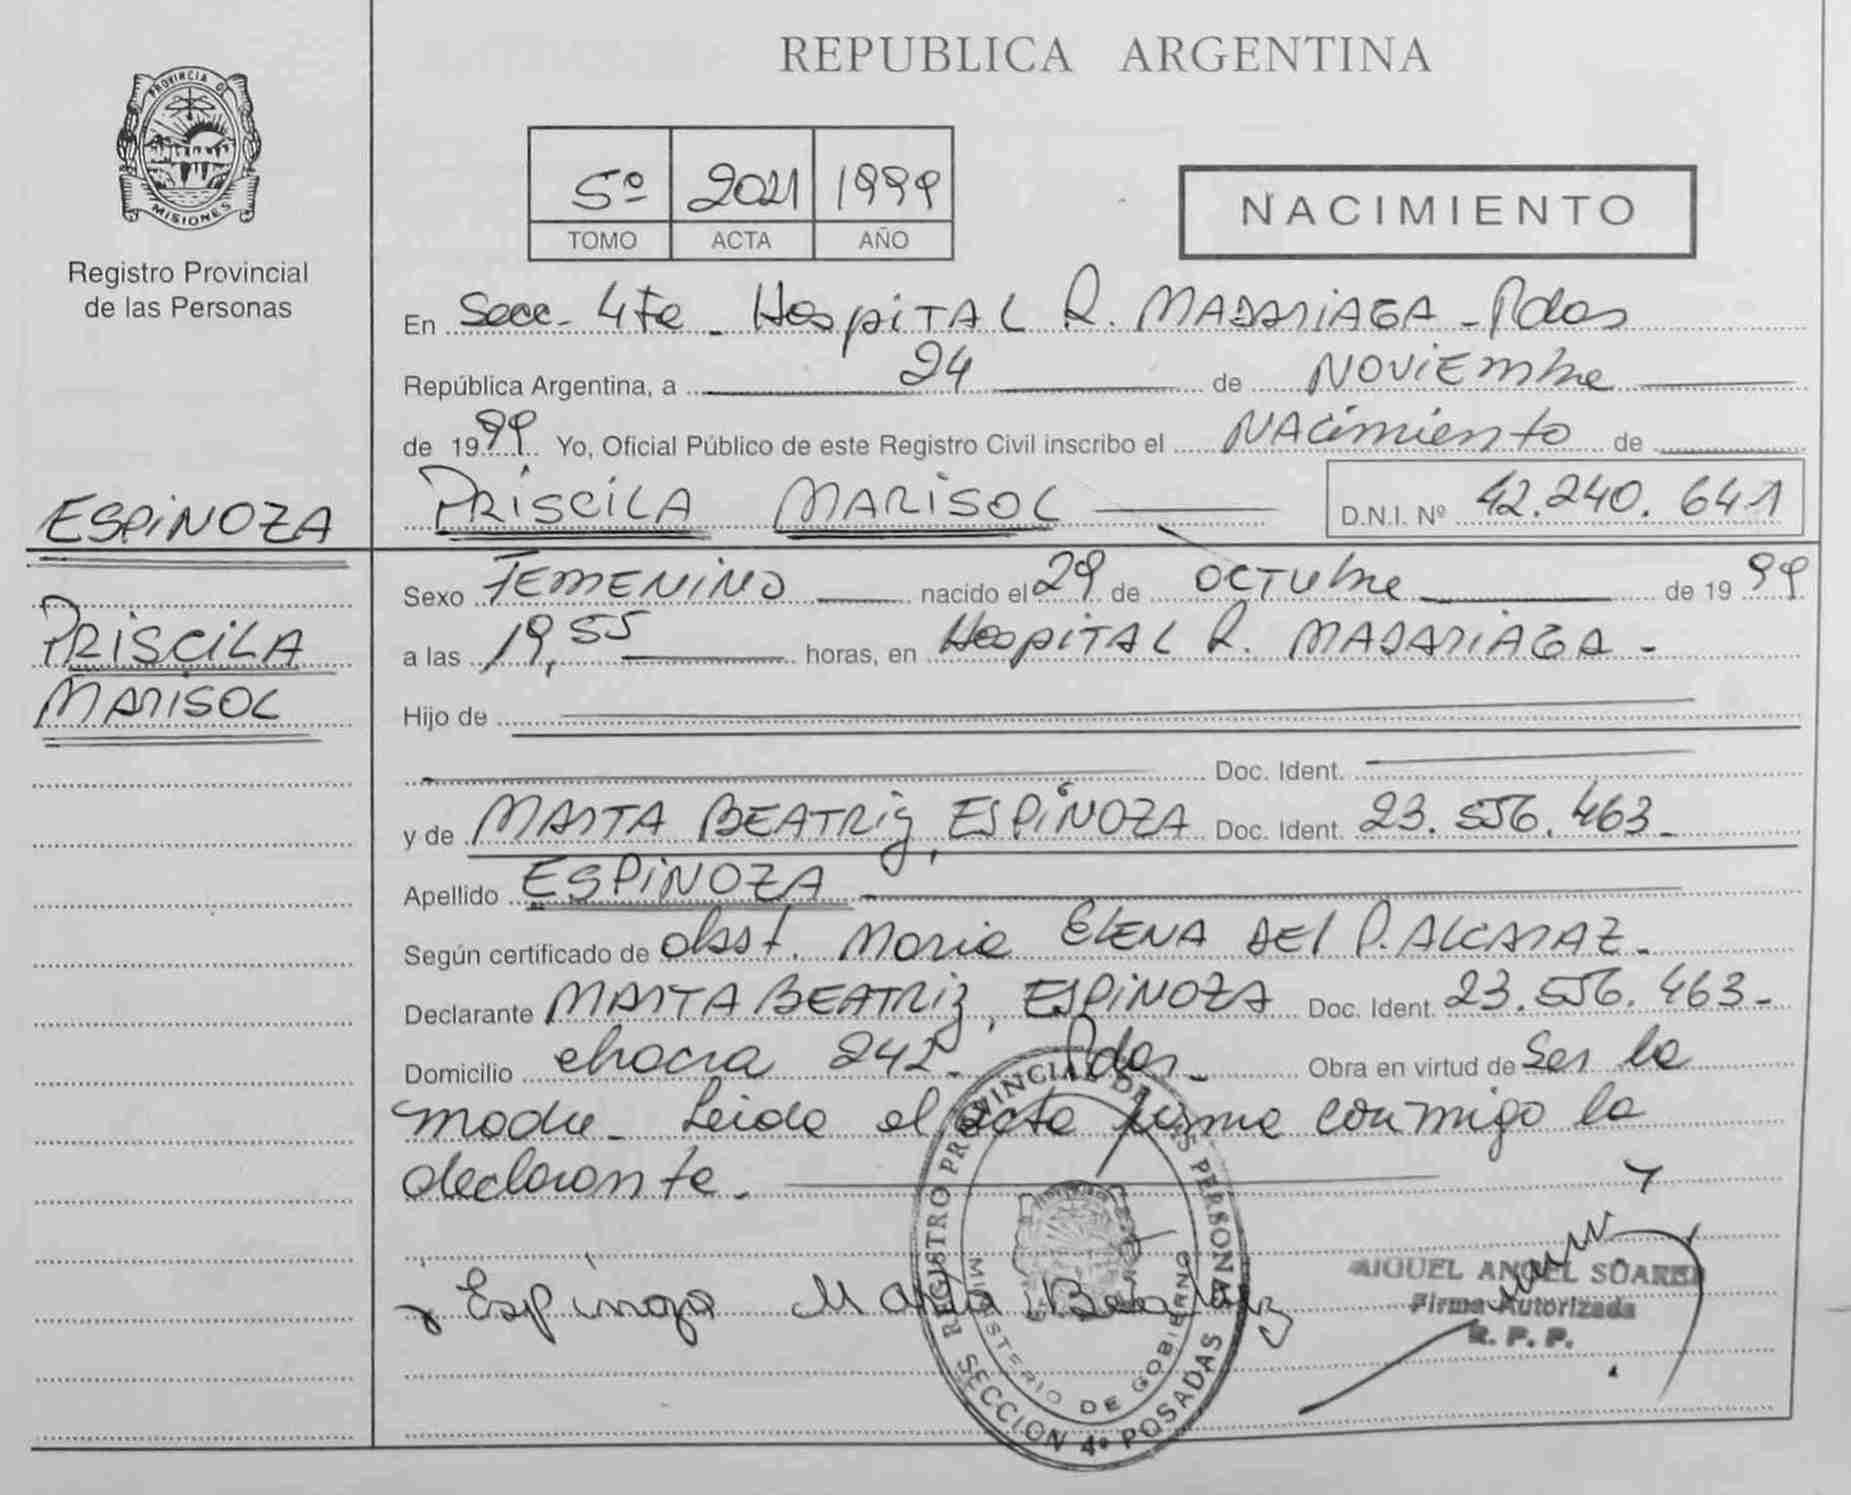 REPUBLICA ARGENTINA
PROVINCIA D
MISIONES
Registro Provincial
de las Personas
5º 2021 1999
TOMO ACTA AÑO
NACIMIENTO
En Secc- 4ta - Hospital R. MADARIAGA - Pdas
República Argentina, a 24 de NOViEmbre
de 1999 Yo, Oficial Público de este Registro Civil inscribo el NAcimiento de
PRisciLA MARiSOL D.N.I. Nº 42.240.641
ESPiNOZA
PRiSciLA
MARiSOL
Sexo FEMENiNO nacido el 29 de OCTubre de 1999
a las 19,55 horas, en HospiTAL R. MADARiAGA -
Hijo de
Doc. Ident.
y de MARTA BEATRiz, ESPiNOZA Doc. Ident. 23.556.463-
Apellido ESPiNOZA
Según certificado de obst. Maria ELENA DEl P. ALCARAZ-
Declarante MARTA BEATRiz, ESPiNOZA Doc. Ident. 23.556.463-
Domicilio chacra 242- Pdas- Obra en virtud de Ser la
madre- Leida el acta firma conmigo la
declarante-
Espinoza Marta Beatriz
MIGUEL ANGEL SUAREZ
Firma Autorizada
R. P. P.
REGISTRO PROVINCIAL DE LAS PERSONAS
MINISTERIO DE GOBIERNO
SECCION 4ª POSADAS